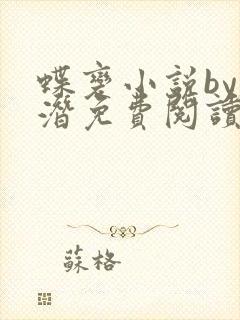 蝶変小説by
潛免費閱讀
蘇格